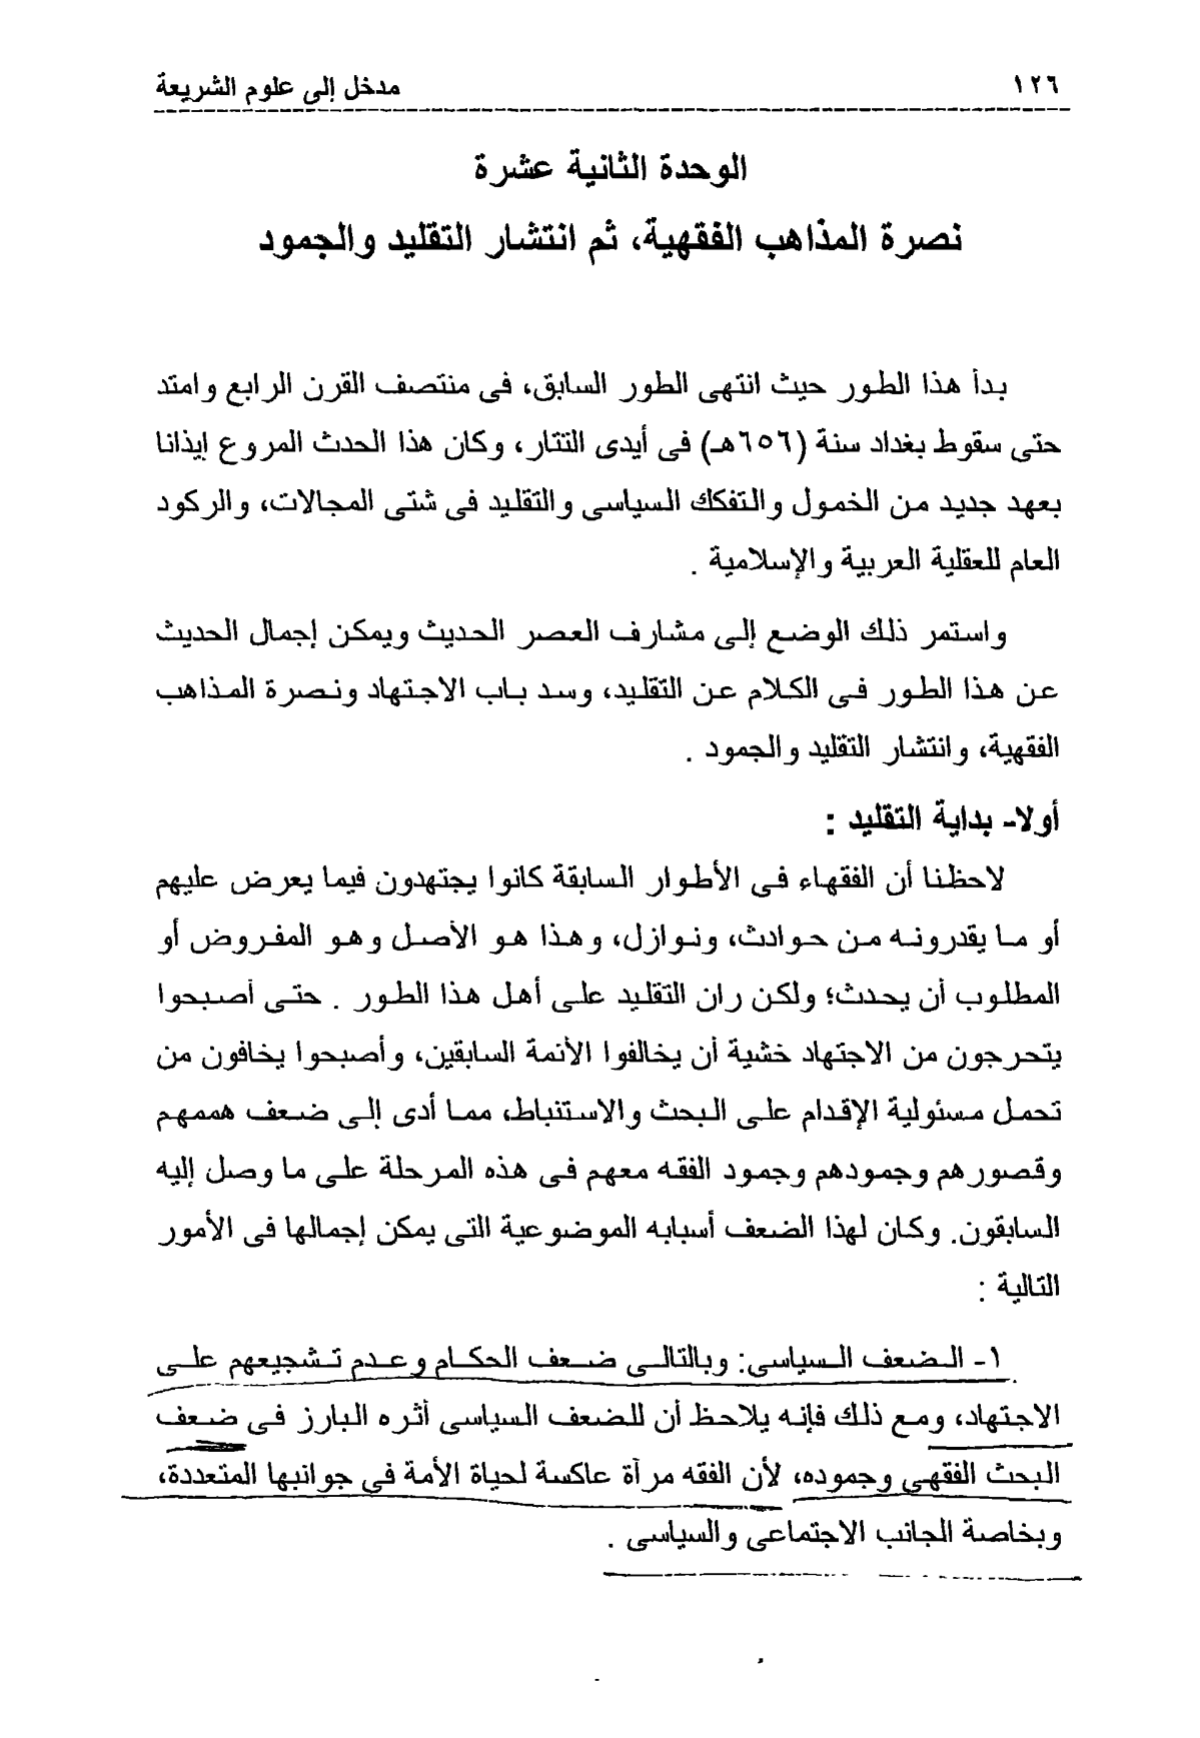 ١٢٦ مدخل إلى علوم الشريعة
الوحدة الثانية عشرة
نصرة المذاهب الفقهية، ثم انتشار التقليد والجمود
بدأ هذا الطور حيث انتهى الطور السابق، فى منتصف القرن الرابع وامتد
حتى سقوط بغداد سنة (٦٥٦هـ) فى أيدى التتار، وكان هذا الحدث المروع إيذانا
بعهد جديد من الخمول والتفكك السياسى والتقليد فى شتى المجالات، والركود
العام للعقلية العربية والإسلامية .
واستمر ذلك الوضع إلى مشارف العصر الحديث ويمكن إجمال الحديث
عن هذا الطور فى الكلام عن التقليد، وسد باب الاجتهاد ونصرة المذاهب
الفقهية، وانتشار التقليد والجمود .
أولا- بداية التقليد :
لاحظنا أن الفقهاء فى الأطوار السابقة كانوا يجتهدون فيما يعرض عليهم
أو ما يقدرونه من حوادث، ونوازل، وهذا هو الأصل وهو المفروض أو
المطلوب أن يحدث؛ ولكن ران التقليد على أهل هذا الطور . حتى أصبحوا
يتحرجون من الاجتهاد خشية أن يخالفوا الأئمة السابقين، وأصبحوا يخافون من
تحمل مسئولية الإقدام على البحث والاستنباط، مما أدى إلى ضعف هممهم
وقصورهم وجمودهم وجمود الفقه معهم فى هذه المرحلة على ما وصل إليه
السابقون. وكان لهذا الضعف أسبابه الموضوعية التى يمكن إجمالها فى الأمور
التالية :
١- الضعف السياسى: وبالتالى ضعف الحكام وعدم تشجيعهم على
الاجتهاد، ومع ذلك فإنه يلاحظ أن للضعف السياسى أثره البارز فى ضعف
البحث الفقهى وجموده، لأن الفقه مرآة عاكسة لحياة الأمة فى جوانبها المتعددة،
وبخاصة الجانب الاجتماعى والسياسى .